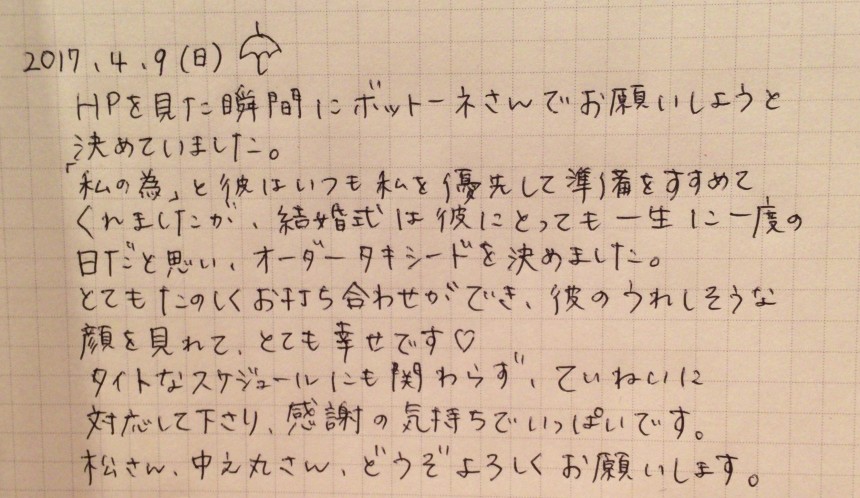 2017.4.9(日)
HPを見た瞬間にボットーネさんでお願いしようと
決めていました。
「私の為」と彼はいつも私を優先して準備をすすめて
くれましたが、結婚式は彼にとっても一生に一度の
日だと思い、オーダータキシードを決めました。
とてもたのしくお打ち合わせができ、彼のうれしそうな
顔を見れて、とても幸せです♡
タイトなスケジュールにも関わらず、ていねいに
対応して下さり、感謝の気持ちでいっぱいです。
松さん、中之丸さん、どうぞよろしくお願いします。